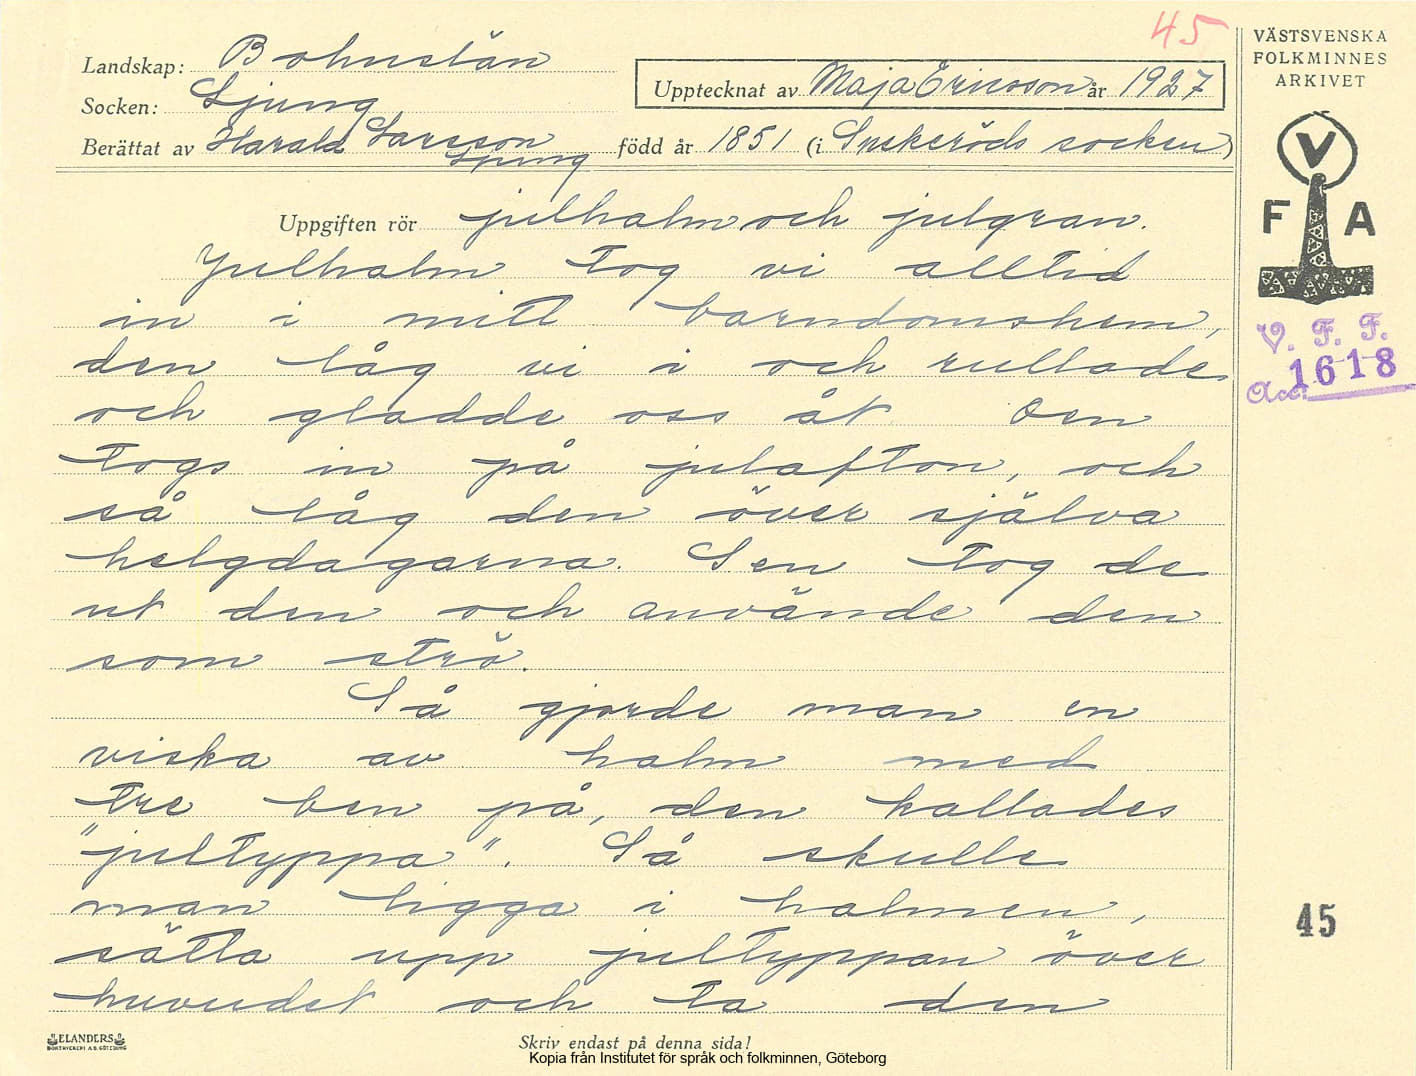 45
VÄSTSVENSKA
FOLKMINNES
ARKIVET
Landskap: Bohuslän
Socken: Ljung
Upptecknat av Maja Ericsson år 1927
Berättat av Harald Larsson född år 1851 (i Inskeröds socken)
Ljung
V
F A
V. F. F.
Acc. 1618
Uppgiften rör julhalm och julgran.
Julhalm tog vi alltid
in i mitt barndomshem,
den låg vi i och rullade
och gladde oss åt Den
togs in på julafton, och
så låg den över själva
helgdagarna. Sen tog de
ut den och använde den
som strö.
Så gjorde man en
viska av halm med
tre ben på, den kallades
"jultyppa". Så skulle
man ligga i halmen,
sätta upp jultyppan över
huvudet och ta den
45
ELANDERS
BOKTRYCKERI A.B. GÖTEBORG
Skriv endast på denna sida!
Kopia från Institutet för språk och folkminnen, Göteborg